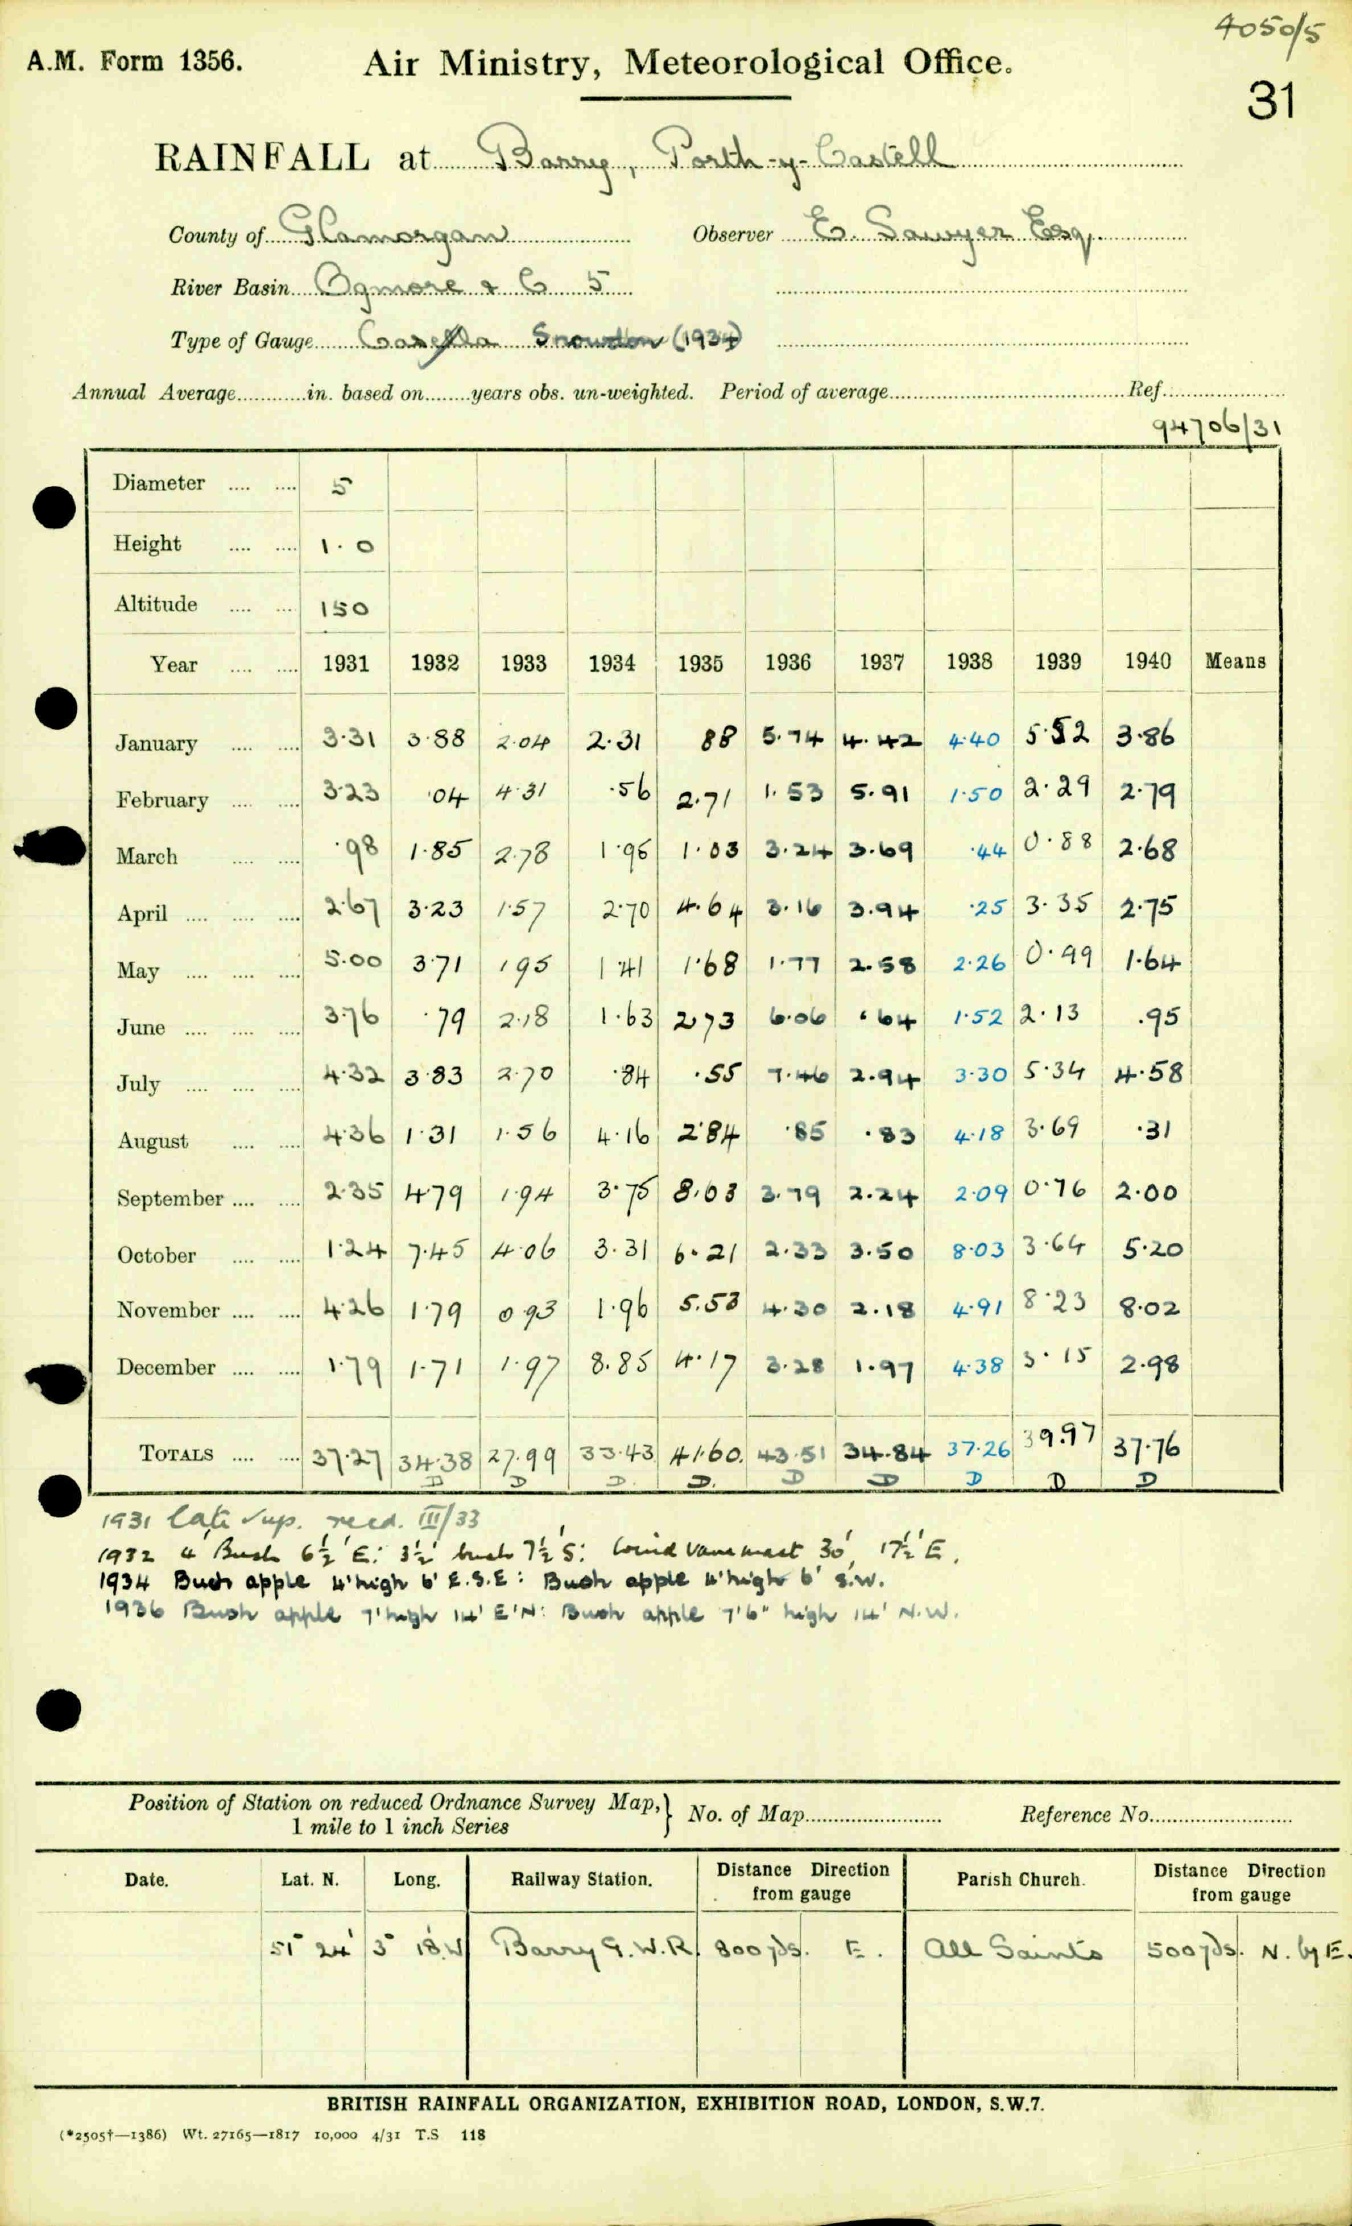 4050/5
A.M. Form 1356. Air Ministry, Meteorological Office.
31
RAINFALL at Barry, Porth-y-Castell
County of Glamorgan Observer E. Sawyer Esq.
River Basin Ogmore & C 5
Type of Gauge Casella Snowdon (1934)
Annual Average............in. based on........years obs. un-weighted. Period of average........Ref.........
94706/31
Diameter .... .... 5
Height .... .... 1.0
Altitude .... .... 150
Year .... .... 1931 1932 1933 1934 1935 1936 1937 1938 1939 1940 Means
January .... .... 3.31 3.88 2.04 2.31 88 5.74 4.42 4.40 5.52 3.86
February .... .... 3.23 .04 4.31 .56 2.71 1.53 5.91 1.50 2.29 2.79
March .... .... .98 1.85 2.78 1.95 1.03 3.24 3.69 .44 0.88 2.68
April .... .... .... 2.67 3.23 1.57 2.70 4.64 3.16 3.94 .25 3.35 2.75
May .... .... .... 5.00 3.71 1.95 1.41 1.68 1.77 2.58 2.26 0.99 1.64
June .... .... .... 3.76 .79 2.18 1.63 2.73 6.06 .64 1.52 2.13 .95
July .... .... .... 4.32 3.83 2.70 .84 .55 7.46 2.94 3.30 5.34 4.58
August .... .... 4.36 1.31 1.56 4.16 2.84 .85 .83 4.18 3.69 .31
September .... .... 2.35 4.79 1.94 3.75 8.63 3.79 2.24 2.09 0.76 2.00
October .... .... 1.24 7.45 4.06 3.31 6.21 2.33 3.50 8.03 3.64 5.20
November .... .... 4.26 1.79 0.93 1.96 5.53 4.30 2.18 4.91 8.23 8.02
December .... .... 1.79 1.71 1.97 8.85 4.17 3.28 1.97 4.38 3.15 2.98
TOTALS .... .... 37.27 34.38 27.99 33.43 41.60. 43.51 34.84 37.26 39.97 37.76
D D D. D. D D D D D
1931 late sup. recd. III/33
1932 4' Bush 6½' E: 3½' bush 7½' S: Wind vane mast 30', 17½' E.
1934 Bush apple 4' high 6' E.S.E: Bush apple 4' high 6' S.W.
1936 Bush apple 7' high 14' E'N: Bush apple 7'6" high 14' N.W.
Position of Station on reduced Ordnance Survey Map, 1 mile to 1 inch Series } No. of Map........ Reference No.........
Date. Lat. N. Long. Railway Station. Distance Direction from gauge Parish Church. Distance Direction from gauge
51° 24' 3° 18'W Barry G.W.R. 800 yds. E. All Saints 500 yds. N. by E.
BRITISH RAINFALL ORGANIZATION, EXHIBITION ROAD, LONDON, S.W.7.
(*2505†—1386) Wt. 27165—1817 10,000 4/31 T.S 118